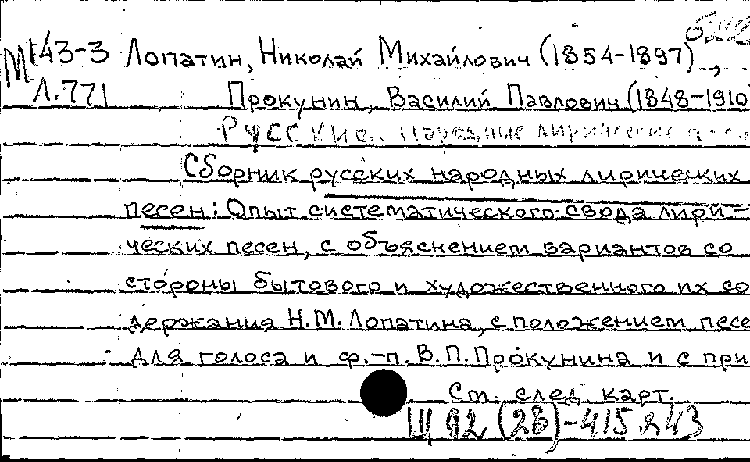 М 143-3 Лопатин, Николай Михайлович (1854-1897),
Л.771 Прокунин, Василий Павлович (1848-1910
Русские народные лирические
Сборник русских народных лирических
песен: Опыт систематического свода лири-
ческих песен, с объяснением вариантов со
стороны бытового и художественного их со
держания Н.М. Лопатина, с положением песе
для голоса и ф.-п. В.П. Прокунина и с при
См. след. карт.
Щ 92 (2В)-415 243